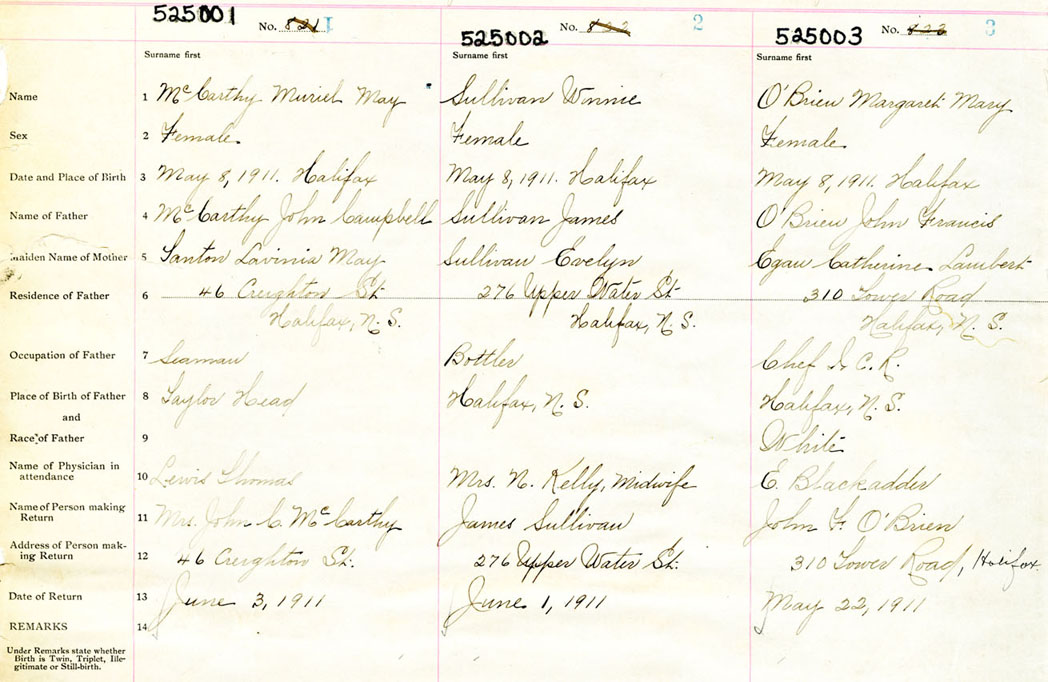 525001 No. 821 1 525002 No. 822 2 525003 No. 823 3
Surname first Surname first Surname first
Name 1 McCarthy Muriel May Sullivan Winnie O'Brien Margaret Mary
Sex 2 Female. Female Female.
Date and Place of Birth 3 May 8, 1911. Halifax May 8, 1911. Halifax May 8, 1911. Halifax
Name of Father 4 McCarthy John Campbell Sullivan James O'Brien John Francis
Maiden Name of Mother 5 Lavinia May Sullivan Evelyn Egan Catherine Lambert
Residence of Father 6 46 Creighton St. 276 Upper Water St. 310 Lower Road
Halifax, N.S. Halifax, N.S. Halifax, N.S.
Occupation of Father 7 Seaman Bottler Chef I. C. R.
Place of Birth of Father 8 Taylor Head Halifax, N.S. Halifax, N.S.
and
Race of Father 9 White
Name of Physician in
attendance 10 Lewis Thomas Mrs. N. Kelly, Midwife E. Blackadder
Name of Person making
Return 11 Mrs. John C. McCarthy James Sullivan John F. O'Brien
Address of Person mak-
ing Return 12 46 Creighton St. 276 Upper Water St. 310 Lower Road, Halifax.
Date of Return 13 June 3, 1911 June 1, 1911 May 22, 1911
REMARKS 14
Under Remarks state whether
Birth is Twin, Triplet, Ille-
gitimate or Still-birth.